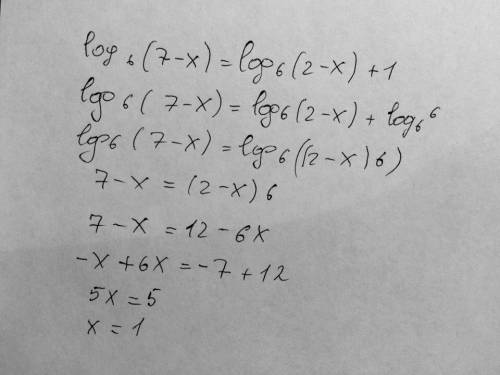 log₆(7-x) = log₆(2-x) + 1
log₆(7-x) = log₆(2-x) + log₆6
log₆(7-x) = log₆((2-x)6)
7-x = (2-x)6
7-x = 12-6x
-x+6x = -7+12
5x = 5
x = 1